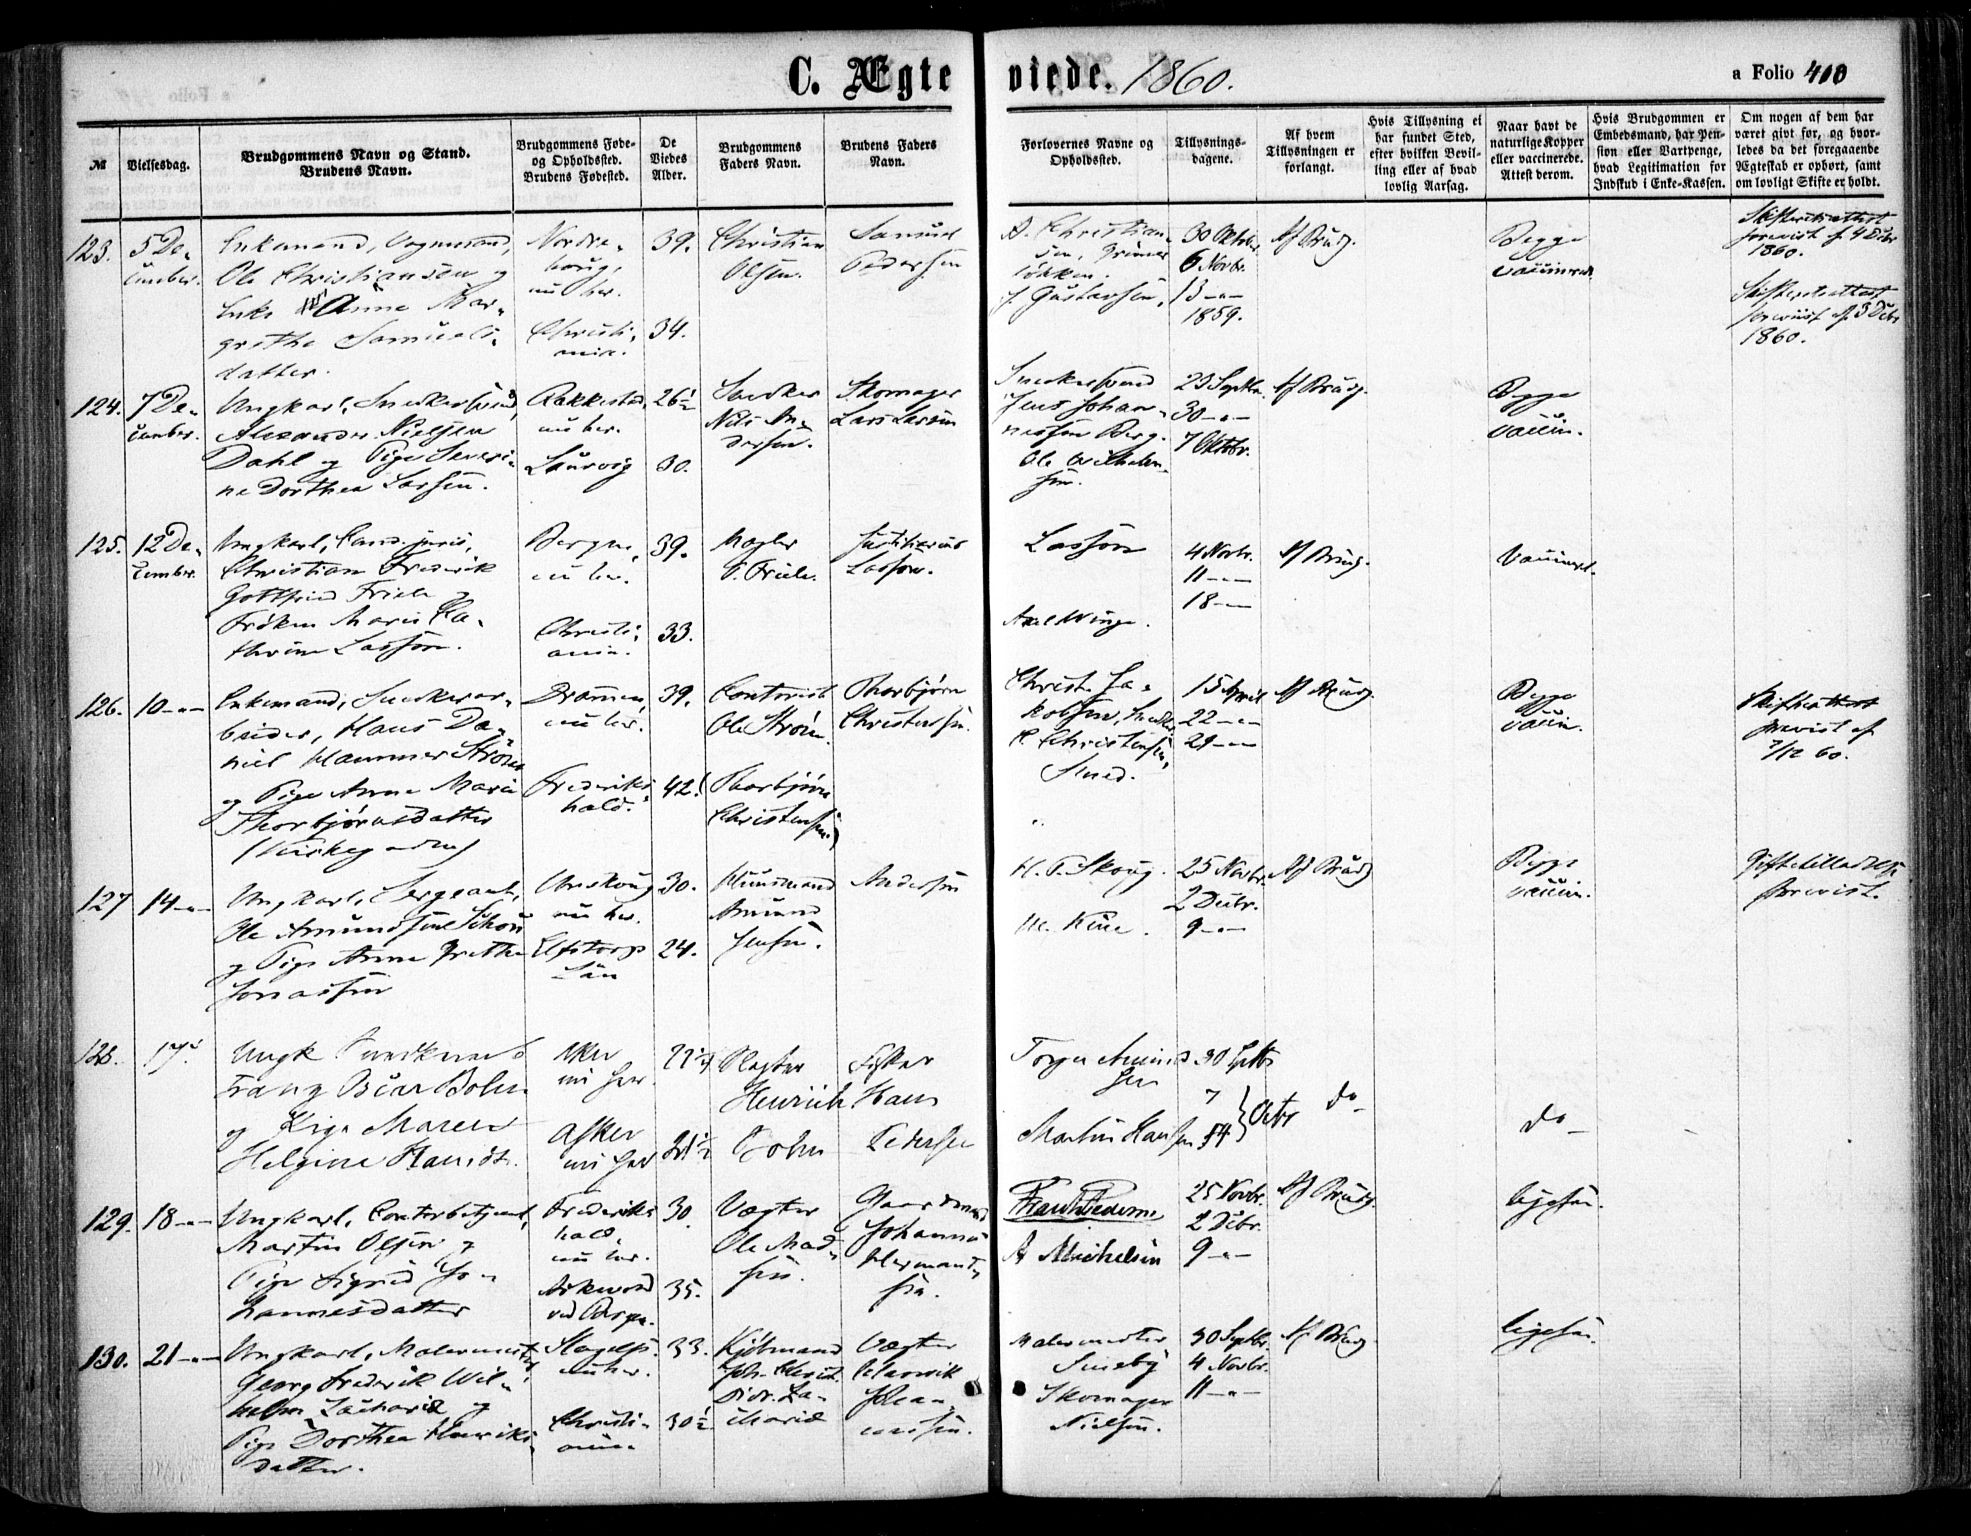 C. Ægteviede. 1860.
a Folio 410
№
Vielsesdag.
Brudgommens Navn og Stand.
Brudens Navn.
Brudgommens Føde-
og Opholdssted.
Brudens Fødested.
De
Viedes
Alder.
Brudgommens
Faders Navn.
Brudens Faders
Navn.
Forlovernes Navne og
Opholdssted.
Tillysnings-
dagene.
Af hvem
Tillysningen er
forlangt.
Hvis Tillysning ei
har fundet Sted,
efter hvilken Bevil-
ling eller af hvad
lovlig Aarsag.
Naar havt de
naturlige Kopper
eller vaccinerede.
Attest derom.
Hvis Brudgommen er
Embedsmand, har Pen-
sion eller Vartpenge,
hvad Legitimation for
Indskud i Enke-Kassen.
Om nogen af dem har
været givt før, og hvor-
ledes da det foregaaende
Ægteskab er ophørt, samt
om lovligt Skifte er holdt.
123.
5 De-
cember.
Enkemand, Vognmand,
Ole Christiansen og
Enke Anne Mar-
grethe Samuels-
datter.
Nordre-
houg,
nu her.
Christi-
ania.
39.
34.
Christian
Olsen.
Samuel
Pedersen
A. Christian-
sen, Grüner
løkken.
J. Gustavsen.
30 Oktbr.
6 Novbr.
13 -"-
1859.
Af Brudg.
Begge
vaccinerede
Skifteretsattest
forevist af 4 Decbr
1860.
Skifteretsattest
forevist af 3 Decbr
1860.
124.
7 De-
cember.
Ungkarl, Snedkersvend,
Alexander Nielsen
Dahl og Pige Severi-
ne Dorthea Larsen.
Rakkestad
nu her.
Laurvig
26½
30.
Snedker
Nils An-
dersen.
Skomager
Lars Larsen
Snedkersvend
Jens Johan-
nessen Berg.
Ole Wilhelm-
sen.
23 Septbr.
30 -"-
7 Oktbr.
Af Brudg.
Begge
vaccin.
125.
12 De-
cember.
Ungkarl, Cand. juris,
Christian Frederik
Gottfried Friele og
Frøken Marie Ca-
thrine Lasson.
Bergen,
nu her.
Christi-
ania.
39.
33.
Mægler
Friele.
Justitiarius
Lasson.
Lasson
Axel Winge.
4 Novbr.
11 -"-
18 -"-
Af Brudg.
vaccineret.
126.
10 -"-
Enkemand, Snedkerar-
beider, Hans Da-
niel Hammer Strøm
og Pige Anne Marie
Thorbjørnsdatter
Drammen,
nu her.
Frederiks-
hald.
39.
42.
Ole Strøm.
Thorbjørn
Christensen
Thorbjørn
Christensen.
Christ. Ja-
kobsen, Snedker
C. Christensen,
Smed.
15 April
22 -"-
29 -"-
Af Brudg.
Begge
vaccin.
Skifteattest
forevist af
7/12 60.
127
14 -"-
Ungkarl, Sergeant,
Ole Amundsen Schou
og Pige Anne Grethe
Jonassen
Urskoug
nu her.
Elfsborgs
Län
30.
24.
Huusmand
Amund
Jensen.
Andersen
H. P. Skoug.
25 Novbr.
2 Decbr.
9 -"-
Af Brudg
Begge
vaccin.
Giftetilladelse
forevist.
128.
17.
Ungk
Frantz Oscar Bohn
og Pige Maren
Helgine Hansdr.
Aker
nu her
Asker
nu her
21½
Hinrich
Bohn
Fisker
Hans
Pedersen
Torger Amund-
sen
Martin Hansen
30 Septb
7
14
Octbr
do
do
129.
18 -"-
Ungkarl, Contorbetjent,
Martin Olsen og
Pige Sigrid Jo-
hannesdatter
Frederiks-
hald,
nu her.
Askevold
ved Bergen.
30.
35.
Vægter
Ole Mad-
sen.
Gaardmand
Johannes
Hermand-
sen.
A Michelsen
25 Novbr.
2 Dcbr.
9 -"-
Af Brudg.
ligesaa.
130.
21 -"-
Ungkarl, Malermester,
Georg Frederik Wil-
helm Zachariæ og
Pige Dorthea Henriks-
datter.
Slagelse.
nu her.
Christi-
ania
33.
30½
Kjøbmand
Joh. Christ.
Fidr. Za-
chariæ
Vægter
Henrik
Johan-
nessen.
Malermester
Smeby
Skomager
Nielsen.
30 Septbr.
4 Novbr.
11 -"-
Af Brudg.
ligesaa.